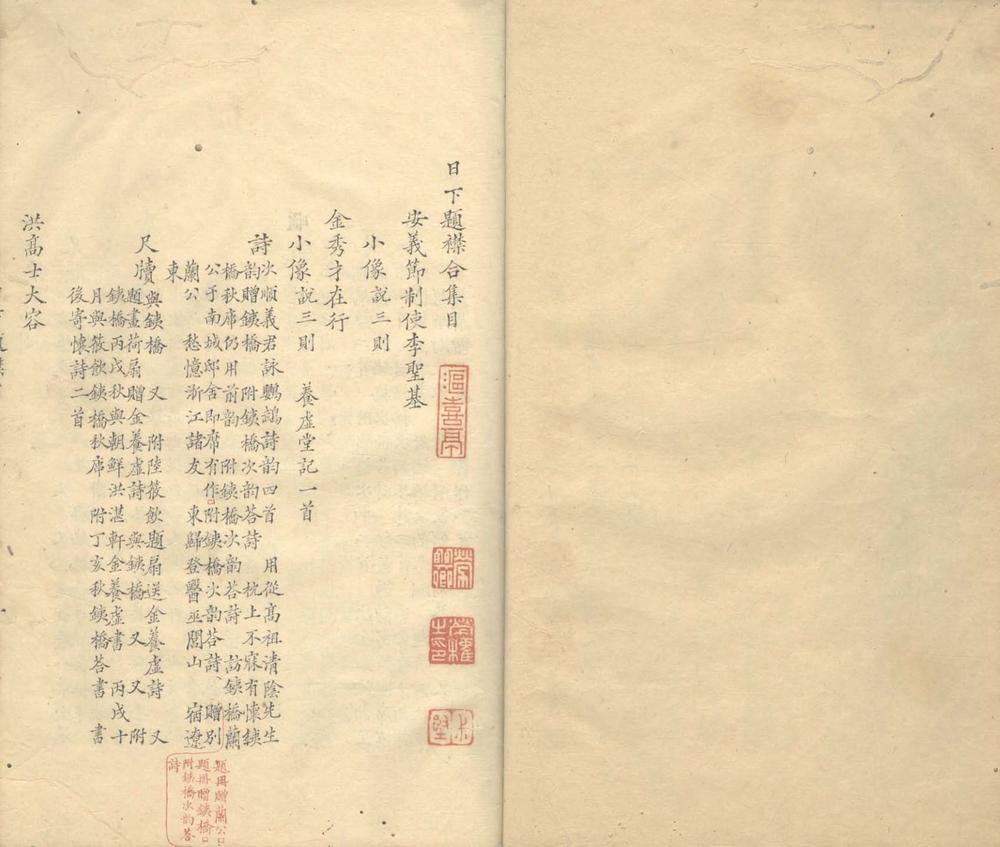 日下題襟合集目
安義節制使李聖基
小像說三則
金秀才在行
小像說三則　養虛堂記一首
詩次順義君詠鸚鵡詩韵四首　用從高祖清陰先生
韵贈鐵橋　附鐵橋次韵荅詩　枕上不寐有懷鐵
橋秋庫仍用前韵　附鐵橋次韵荅詩　訪鐵橋蘭
公于南城邸舍即席有作　附鐵橋次韵荅詩　贈別
蘭公　愁憶浙江諸友　東歸登醫巫閭山　宿遼
東
尺牘與鐵橋　又　附陸筱飲題扇送金養虛詩　又
題畫荷扇贈金養虛詩　與鐵橋　又　又　附
鐵橋丙戌秋與朝鮮洪湛軒金養虛書　丙戌十
月與筱飲鐵橋秋庫　附丁亥秋鐵橋荅書　書
後寄懷詩二首
洪高士大容
題冊贈蘭公
題冊贈鐵橋
附鐵橋次韵荅
詩
漚喜亭